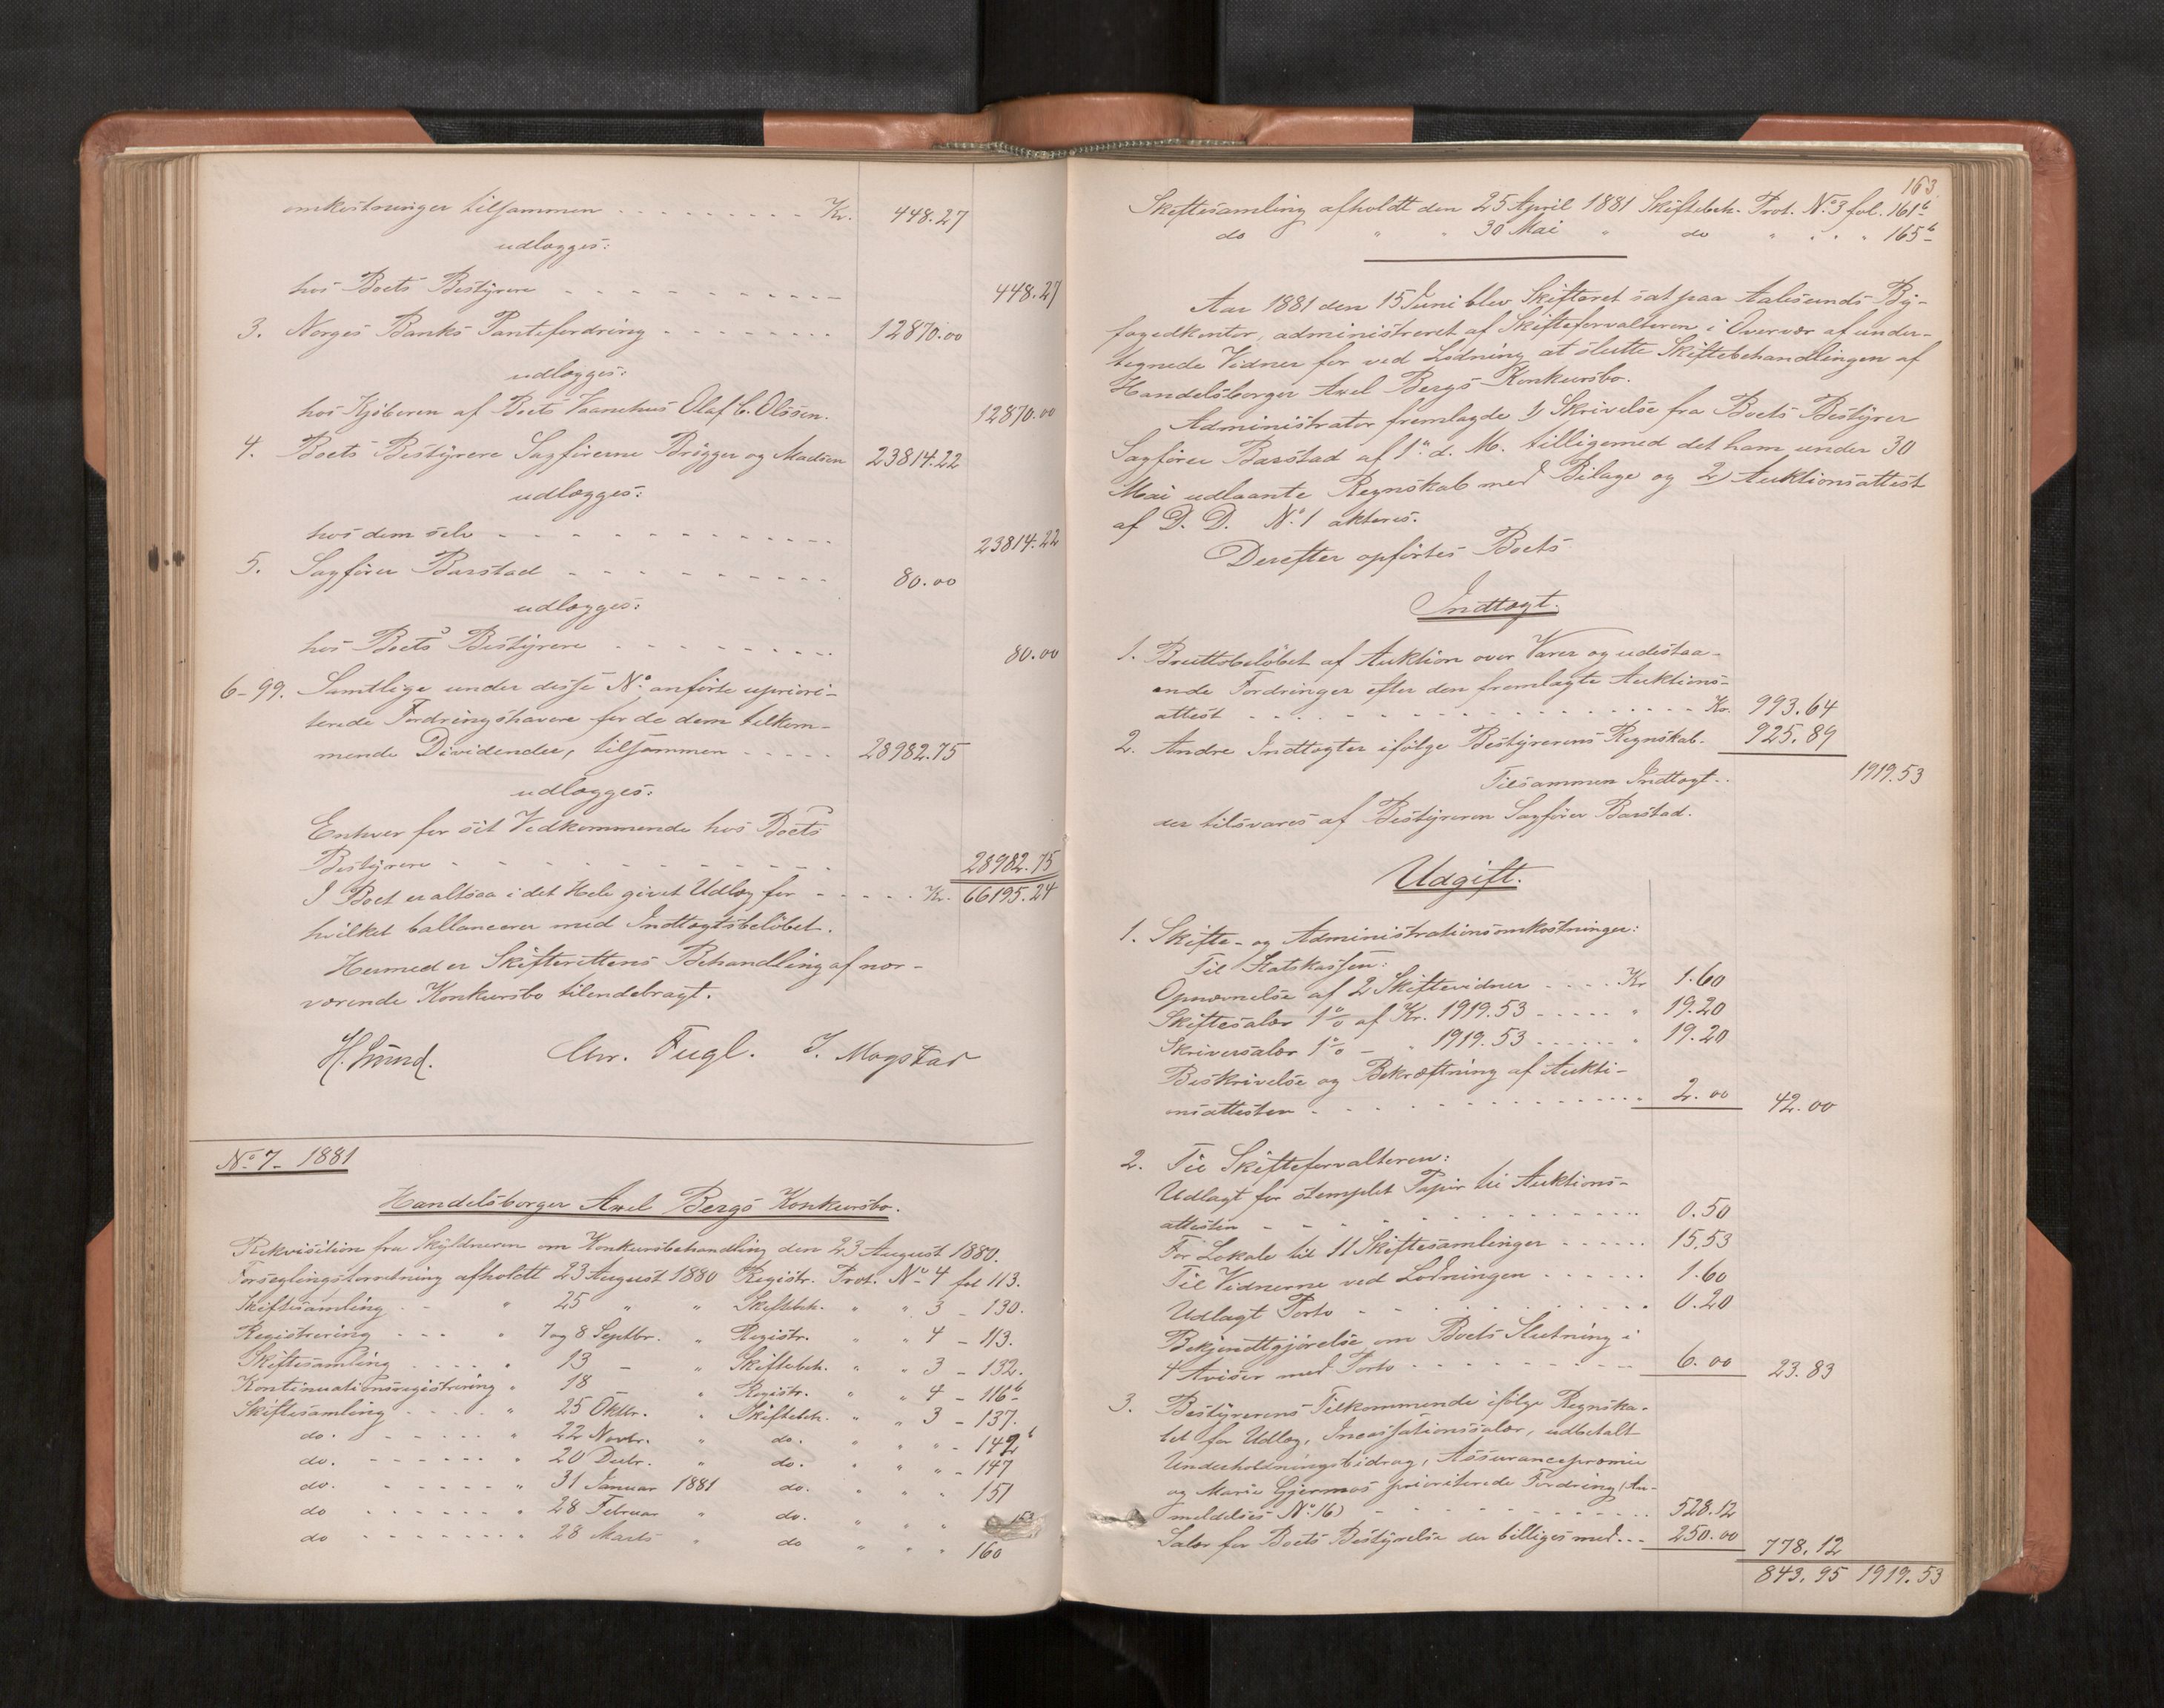 omkostninger tilsammen . . . . . . . . . Kr. 448.27
udlægges:
hos Boets Bestyrere - - - - - - - - - - 448.27
3. Norges Banks Pantefordring - - - - - - - 12870.00
udlægges:
hos Kjøberen af Boets Vaanehus Olaf C. Olssen. 12870.00
4. Boets Bestyrere Sagførerne Brigger og Madsen 23814.22
udlægges:
hos dem selv - - - - - - - - - - 23814.22
5. Sagfører Barstad - - - - - - - - - 80.00
udlægges:
hos Boets Bestyrere . . . . . . . . . 80.00
6-99. Samtlige under disse No. anførte upriori-
terede Fordringshavere for de dem tilkom-
mende Dividender, tilsammen - - - - - 28982.75
udlægges:
Enhver for sit Vedkommende hos Boets
Bestyrere - - - - - - - - - - - 28982.75
I Boet er altsaa i det Hele givet Udlæg for - - - - - Kr. 66195.24
hvilket ballancerer med Indtægtsbeløbet.
Hermed er Skifterettens Behandling af nær-
værende Konkursbo tilendebragt.
H. Lund. Chr. Fugl. J. Magstad
No. 7 - 1881
Handelsborger Axel Bergs Konkursbo.
Rekvisition fra Skyldneren om Konkursbehandling den 23 August 1880.
Forseglingsforretning afholdt 23 August 1880 Registr. Prot. No. 4 fol 113.
Skiftesamling - - " 25 " " Skiftebeh. " " 3 - 130.
Registrering - - - " 7 og 8 Septbr. " Registr. " " 4 - 113.
Skiftesamling - - - - " 13 - " Skiftebeh. " " 3 - 132.
Kontinuationsregistrering " 18 " Registr. " " 4 - 116b
Skiftesamling - - - - " 25 Oktbr. " Skiftebeh. " " 3 - 137.
do. - - - - - - " 22 Novbr. " do. " " " - 142b
do. - - - - - - " 20 Decbr. " do. " " " - 147
do. - - - - - - " 31 Januar 1881 do. " " " 151
do - - - - - - " 28 Februar " do. " " " 153
do - - - - - - " 28 Marts " do " " " 160
163
Skiftesamling afholdt den 25 April 1881 Skiftebeh. Prot. No. 3 fol. 161b
do " " 30 Mai " do " " " " 165b
Aar 1881 den 15 Juni blev Skifteret sat paa Aalesunds By-
fogedkontor, administreret af Skifteforvalteren i Overvær af under-
tegnede Vidner for ved Lodning at slutte Skiftebehandlingen af
Handelsborger Axel Bergs Konkursbo.
Administrator fremlagde 1) Skrivelse fra Boets Bestyrer
Sagfører Barstad af 1ste d. M. tilligemed det ham under 30
Mai udlaante Regnskab med Bilage og 2) Auktionsattest
af D. D. No. 1 akteres.
Derefter opførtes Boets
Indtægt.
1. Bruttobeløbet af Auktion over Varer og udestaa-
ende Fordringer efter den fremlagte Auktions-
attest - - - - - - - - - - - - - Kr. 993.64
2. Andre Indtægter ifølge Bestyrerens Regnskab. 925.89
Tilsammen Indtægt. . 1919.53
der tilsvares af Bestyreren Sagfører Barstad.
Udgift.
1. Skifte- og Administrationsomkostninger:
Til Statskassen:
Opnævnelse af 2 Skiftevidner - - - - Kr 1.60
Skiftesalær 1% af Kr. 1919.53 - - - - - " 19.20
Skriversalær 1% - " 1919.53 - - - - - " 19.20
Beskrivelse og Bekræftning af Aukti-
onsattesten - - - - - - - - - - - - 2.00 42.00
2. Til Skifteforvalteren:
Udlagt for stemplet Papir til Auktions-
attesten - - - - - - - - - - - - 0.50
For Lokale til 11 Skiftesamlinger - - - - - - 15.53
Til Vidnerne ved Lodningen - - - - - - 1.60
Udlagt Porto - - - - - - - - - - - 0.20
Bekjendtgjørelse om Boets Slutning i
4 Aviser med Porto - - - - - - - - - 6.00 23.83
3. Bestyrerens Tilkommende ifølge Regnska-
bet for Udlæg, Incassationssalær, udbetalt
Underholdningsbidrag, Assurancepræmie
og Marie Gjermoes prioriterede Fordring (An-
meldelses No. 16) - - - - - - - - - - - 528.12
Salær for Boets Bestyrelse der billiges med - - - 250.00 778.12
843.95 1919.53